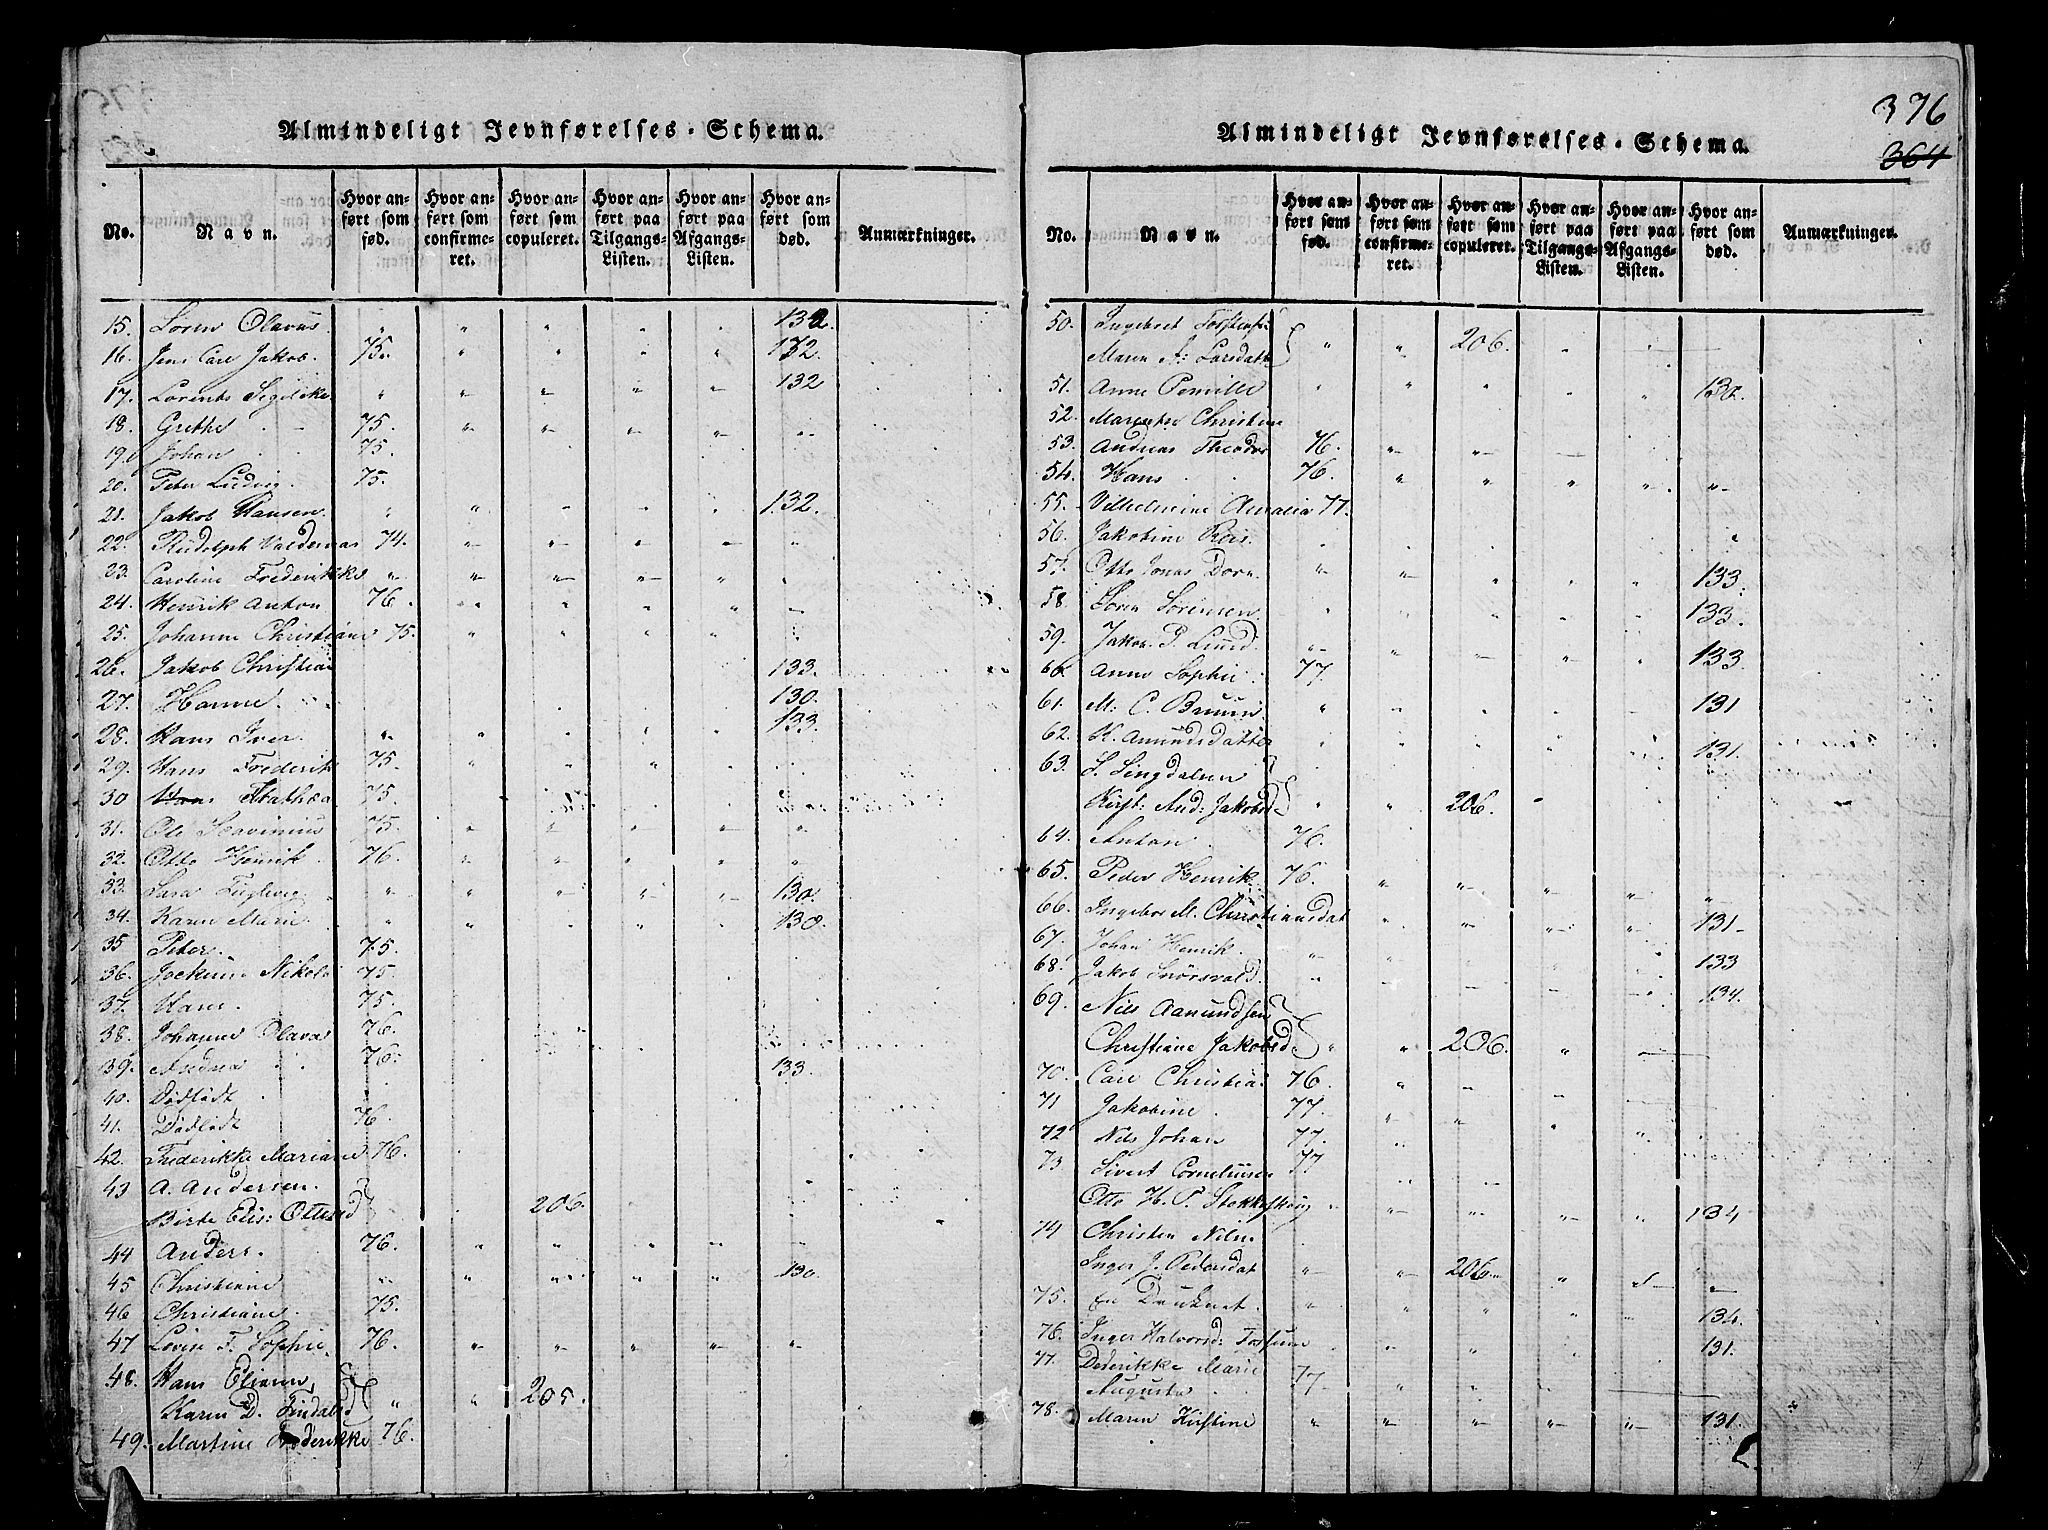 Almindeligt Jevnførelses-Schema.
No. Navn. Hvor anført som fød. Hvor anført som confirmeret. Hvor anført som copuleret. Hvor anført paa Tilgangs-Listen. Hvor anført paa Afgangs-Listen. Hvor anført som død. Anmærkninger.
15. Søren Olavus 132.
16. Jens Carl Jakob. 75. 132.
17. Lorents 132
18. Grethe 75.
19. Johan 75.
20. Peter Ludvig. 75.
21. Jakob Hansen. 132.
22. Rudolph Valdemar 74.
23. Caroline Frederikke
24. Henrik Anton 76.
25. Johanne Christiane 75.
26. Jakob Christian 133.
27. Hanne. 130.
28. Hans Iver. 133.
29. Hans Frederik 75.
30 75.
31. Ole 75.
32. Otto Henrik. 76.
33. Sara 130.
34. Karen Marie. 130.
35 Peter. 75.
36. Nikolai 75.
37. Hans. 75.
38. Johanne Olava 76.
39. Andrea 76. 133.
40. Dødfødt
41. Dødfødt 76.
42. Frederikke Mariane 76.
43 A. Andersen.
Birte Elis: Ottesd 206.
44 Anders. 76.
45 Christiane 130.
46 Christiane. 75.
47 Lovise F. Sophie. 76.
48. Hans
Karen D. 205.
49. Martine 76.
376
364
Almindeligt Jevnførelses-Schema.
No. Navn. Hvor anført som fød. Hvor anført som confirmeret. Hvor anført som copuleret. Hvor anført paa Tilgangs-Listen. Hvor anført paa Afgangs-Listen. Hvor anført som død. Anmærkninger.
50. Ingebret
Maren A: Larsdatt 206.
51. Anne Pernille 132.
52. Christine
53. Andreas Theodor 76.
54. Hans 76.
55. Vilhelmine Amalia 77.
56. Jakobine
57. Otto Jonas Dorn. 133.
58. Søren Sørensen 133.
59. Jakob P. Lund. 133
60 Anne Sophie 77.
61. M. C. Bruun. 131
62. K. Amundsdatter 131.
63. S. Lingdalsen
Kirst: And: Jakobsd 206.
64. Anton. 76.
65. Peder Henrik 76.
66. Ingebor M. Christiansdat 131
67. Johan Henrik. 133
68. Jakob 134.
69. Nils Aamundsen
Christiane Jakobsd 206.
70. Carl Christian 76.
71 Jakobine. 77.
72 Nils Johan 77.
73 Sivert Corneliusen 77
Otto H. P. 134
74 Christen Nilsn.
Inger J. Pedersdat 206.
75. En 134.
76. Inger Halvorsd: Fossum 131.
77. Dederikke Marie
Augusta. 77.
78. Maren Kirstine 131.